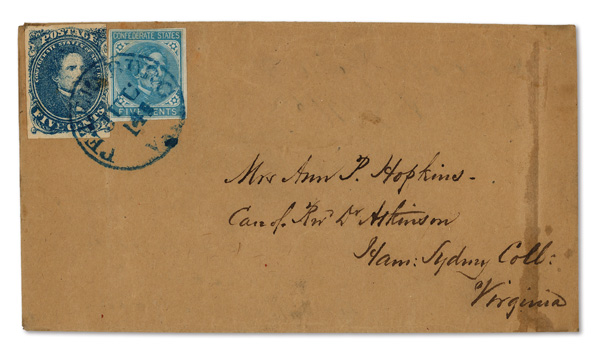 POSTAGE
CONFEDERATE STATES
FIVE CENTS
CONFEDERATE STATES
FIVE CENTS
14
Mrs Ann P. Hopkins-
Care of. Revd Dr Atkinson
Ham: Sydney Coll:
Virginia